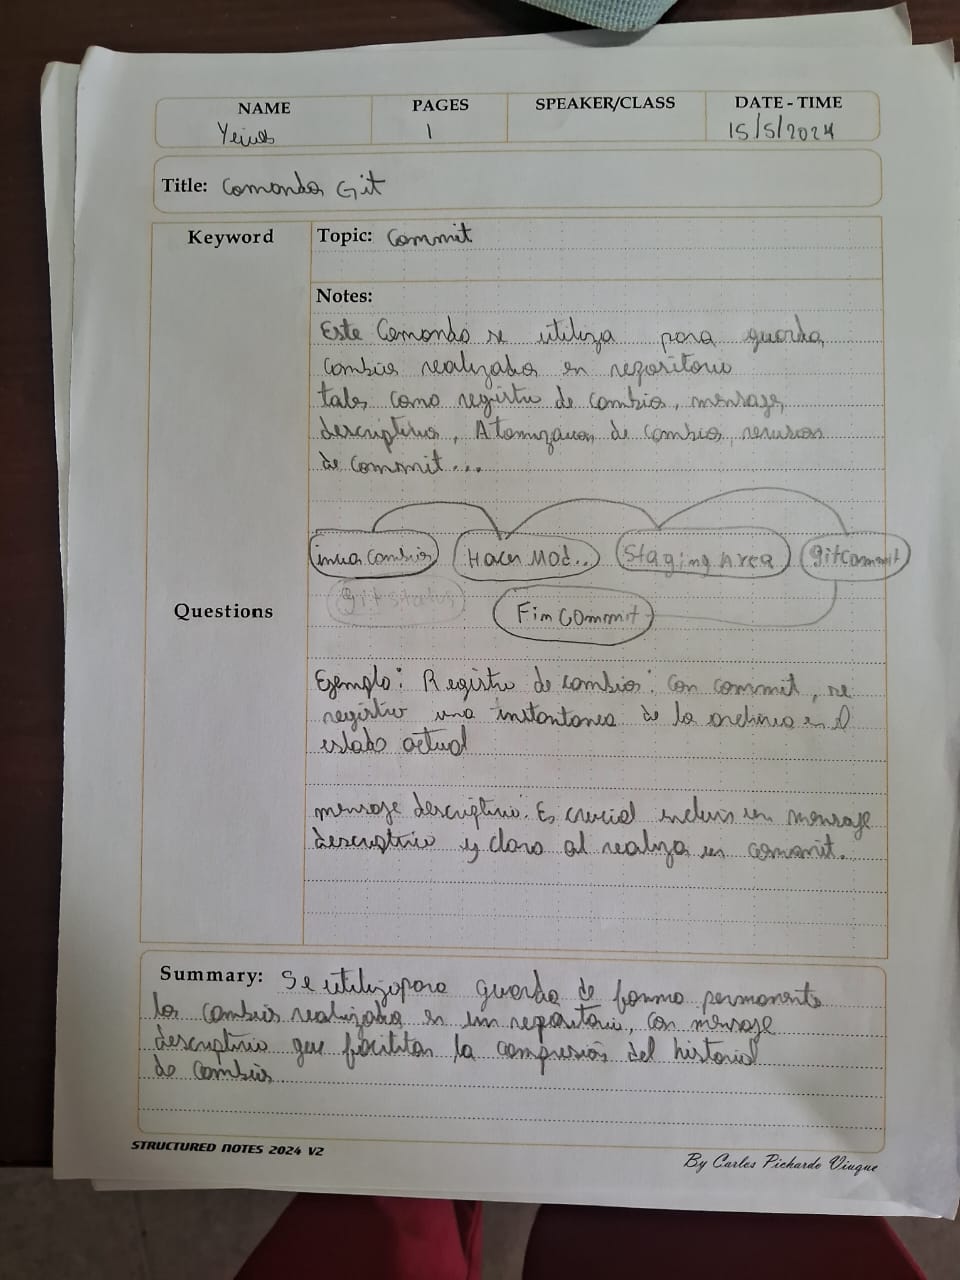 NAME PAGES SPEAKER/CLASS DATE - TIME
1 15/5/2024
Title: Comandos Git
Keyword Topic: Commit
Notes:
Este Comando se utiliza para guarda
cambios realizados en repositorio
tales como registro de cambios, mensajes
descriptivos, de cambios,
de commit...
inicia Cambios Hacer Mod.. Staging Area gitCommit
Git status
Questions Fin COmmit
Ejemplo: Registro de cambios: Con commit, se
registro una instantanea de los archivos en el
estado actual
mensaje descriptivo: Es crucial incluir un mensaje
descriptivo y claro al realiza un commit.
Summary: Se utiliza para guarda de forma permanente
los cambios realizados en un repositorio, con mensaje
descriptivo que facilitan la compresion del historial
de cambios
STRUCTURED NOTES 2024 V2
By Carlos Pichardo Viuque